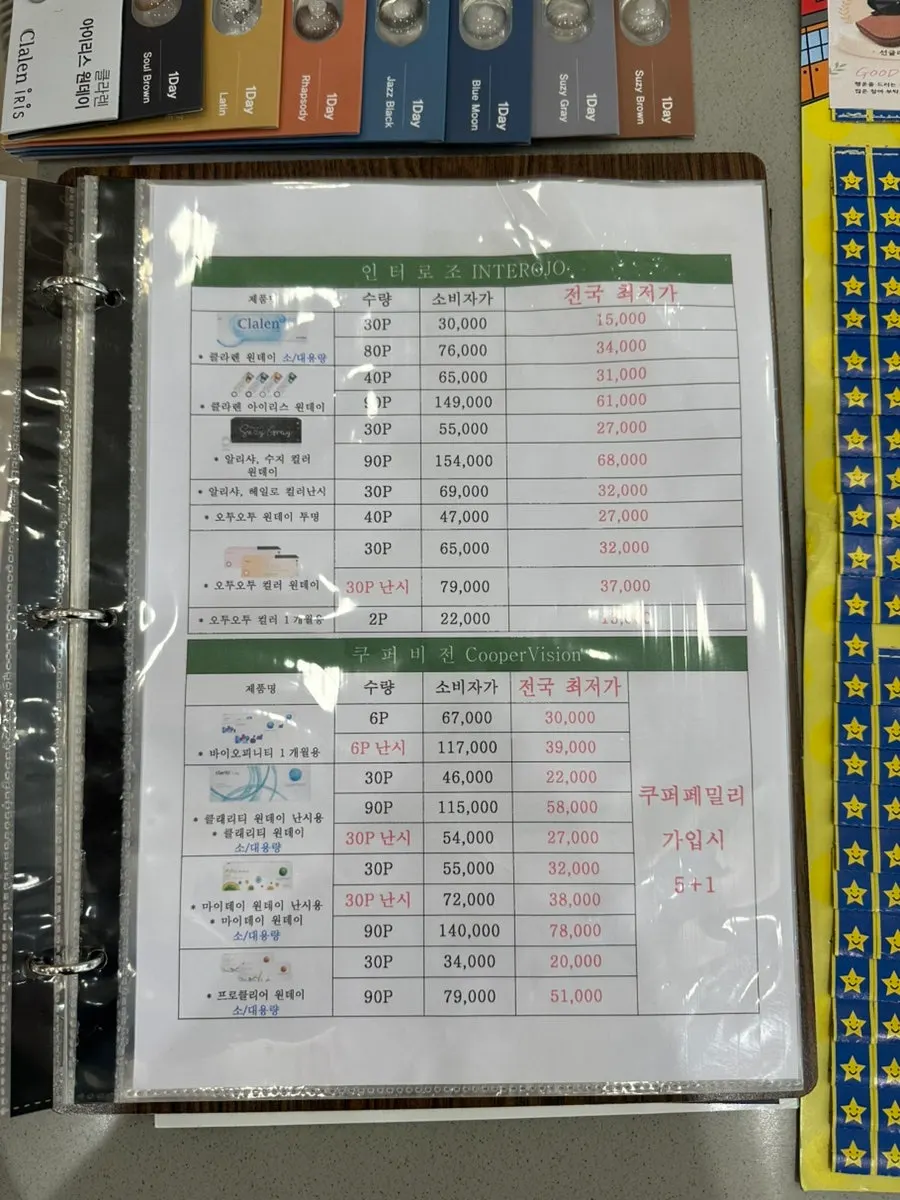 Clalen iris
클라렌
아이리스 원데이
Soul Brown
1Day
Latin
1Day
Rhapsody
1Day
Jazz Black
1Day
Blue Moon
1Day
Suzy Gray
1Day
Suzy Brown
1Day
GOOD
인터로조 INTEROJO
제품명 수량 소비자가 전국 최저가
Clalen
* 클라렌 원데이 소/대용량
30P 30,000 15,000
80P 76,000 34,000
* 클라렌 아이리스 원데이
40P 65,000 31,000
90P 149,000 61,000
Suzy Gray
* 알리샤, 수지 컬러
원데이
30P 55,000 27,000
90P 154,000 68,000
* 알리샤, 헤일로 컬러난시 30P 69,000 32,000
* 오투오투 원데이 투명 40P 47,000 27,000
* 오투오투 컬러 원데이
30P 65,000 32,000
30P 난시 79,000 37,000
* 오투오투 컬러 1개월용 2P 22,000
쿠퍼비전 CooperVision
제품명 수량 소비자가 전국 최저가
* 바이오피니티 1개월용
6P 67,000 30,000
6P 난시 117,000 39,000
clariti
* 클래리티 원데이 난시용
* 클래리티 원데이
소/대용량
30P 46,000 22,000
90P 115,000 58,000
30P 난시 54,000 27,000
* 마이데이 원데이 난시용
* 마이데이 원데이
소/대용량
30P 55,000 32,000
30P 난시 72,000 38,000
90P 140,000 78,000
* 프로클리어 원데이
소/대용량
30P 34,000 20,000
90P 79,000 51,000
쿠퍼페밀리
가입시
5+1